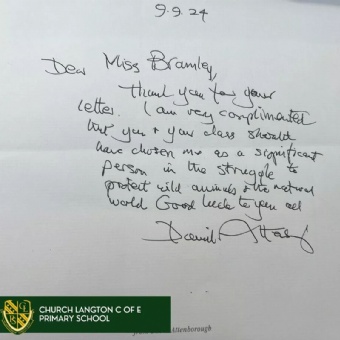 9.9.24
Dear Miss Bramley,
Thank you for your
letter. I am very complimented
that you + your class should
have chosen me as a significant
person in the struggle to
protect wild animals & the natural
world Good luck to you all
David Atten
Attenborough
CHURCH LANGTON C OF E
PRIMARY SCHOOL